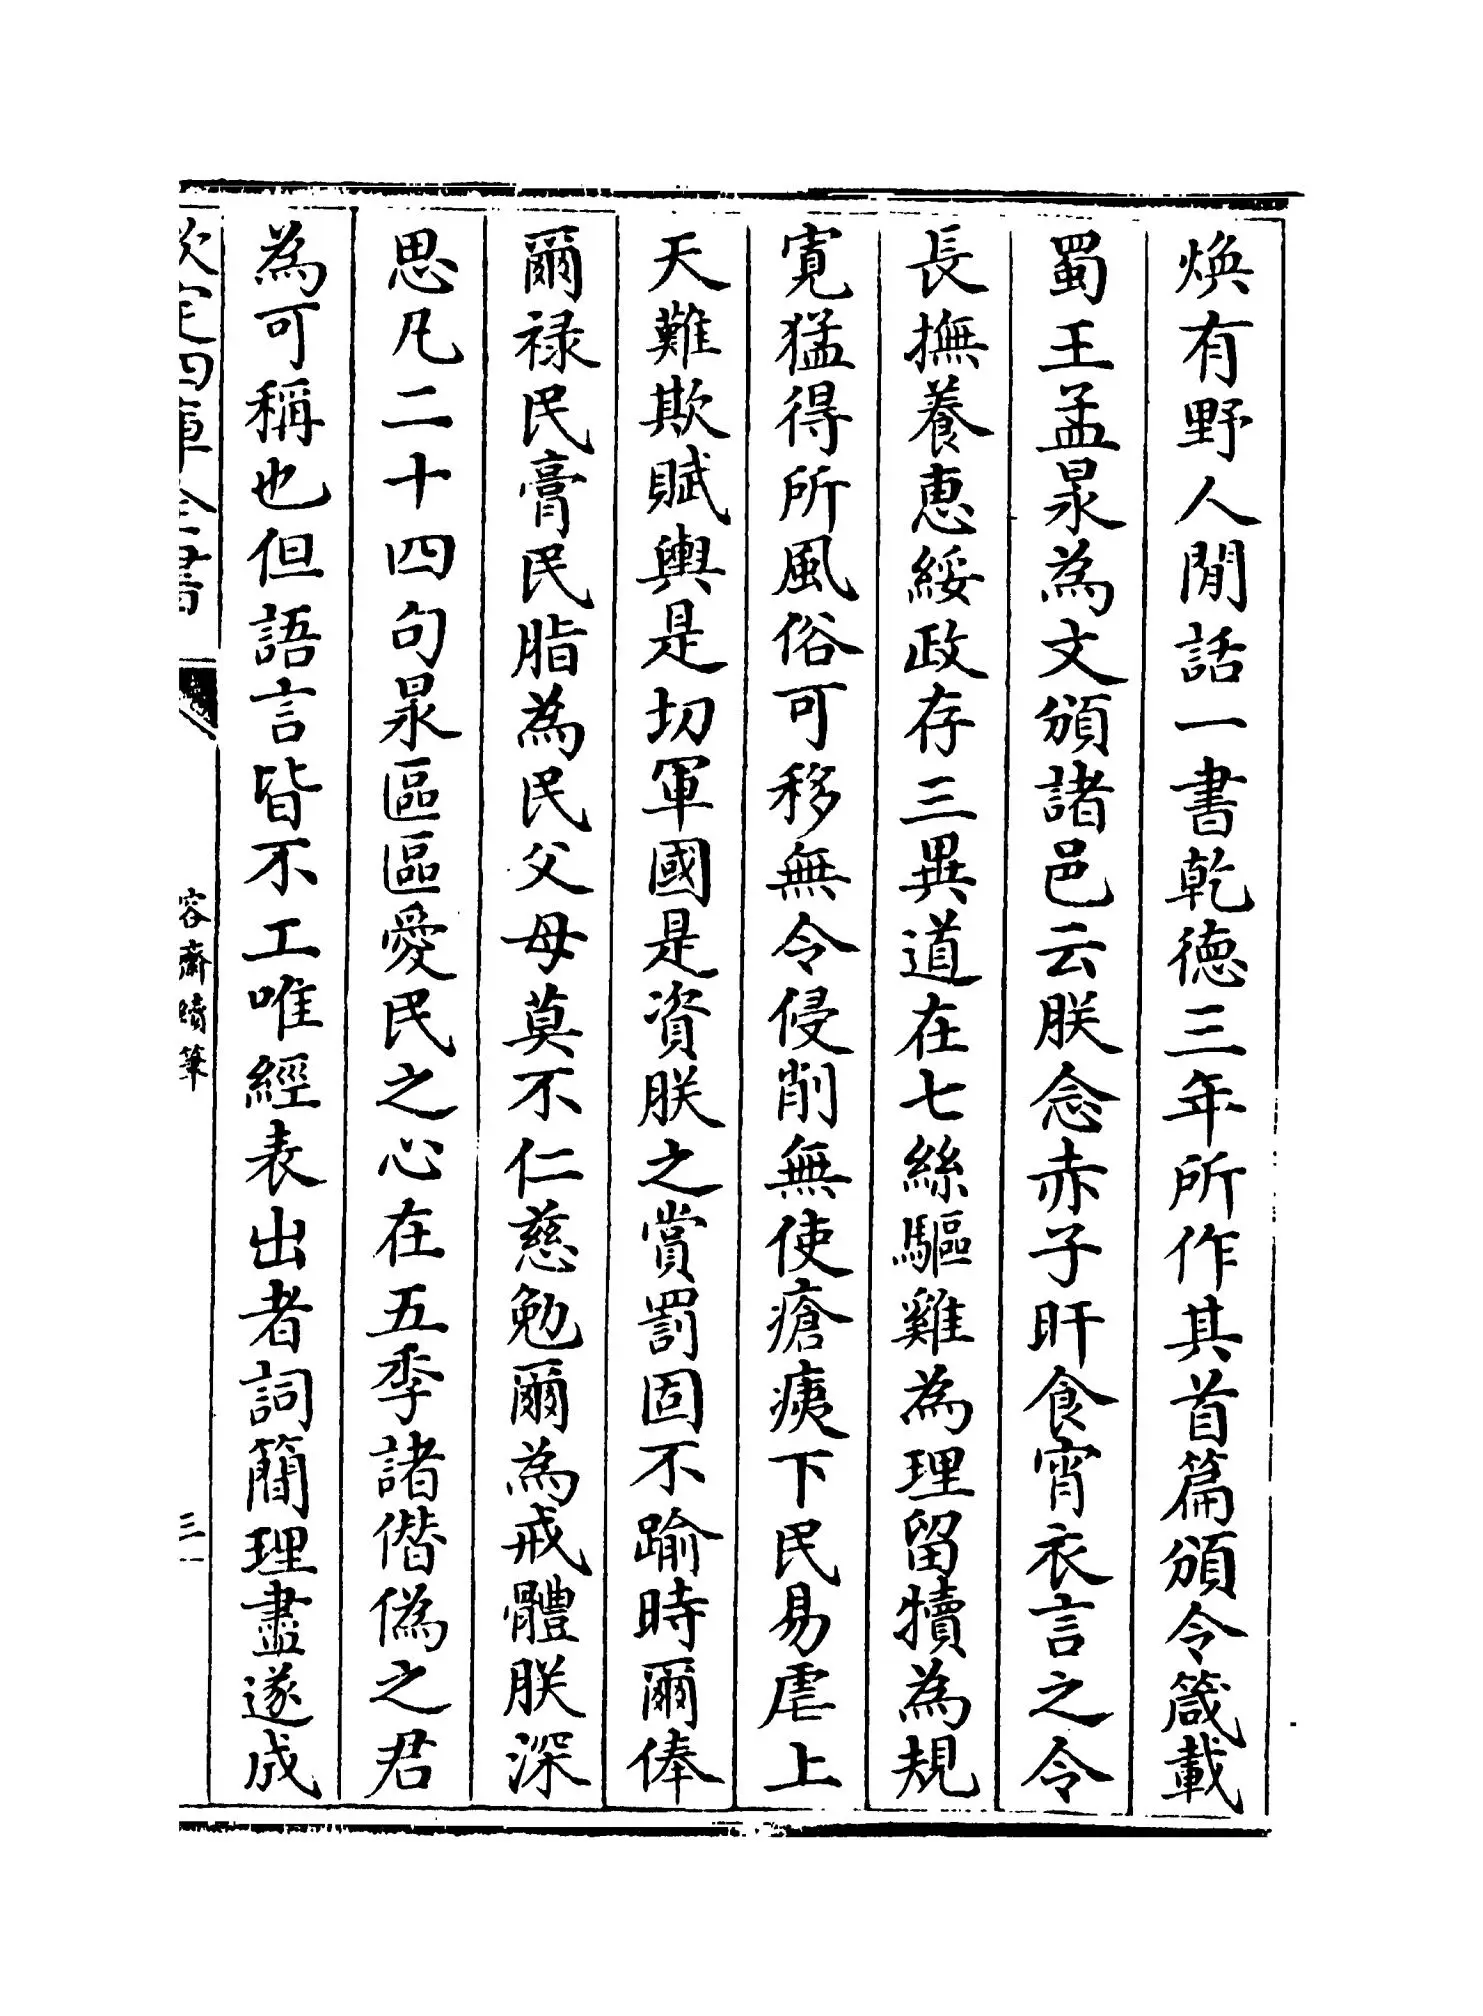 煥有野人閒話一書乾德三年所作其首篇頒令箴載
蜀王孟㫤為文頒諸邑云朕念赤子旰食宵衣言之令
長撫養惠綏政存三異道在七絲驅雞為理留犢為規
寛猛得所風俗可移無令侵削無使瘡痍下民易虐上
天難欺賦輿是切軍國是資朕之賞罰固不踰時爾俸
爾禄民膏民脂為民父母莫不仁慈勉爾為戒體朕深
思凡二十四句㫤區區愛民之心在五季諸僭偽之君
為可稱也但語言皆不工唯經表出者詞簡理盡遂成
欽定四庫全書
容齋續筆
三